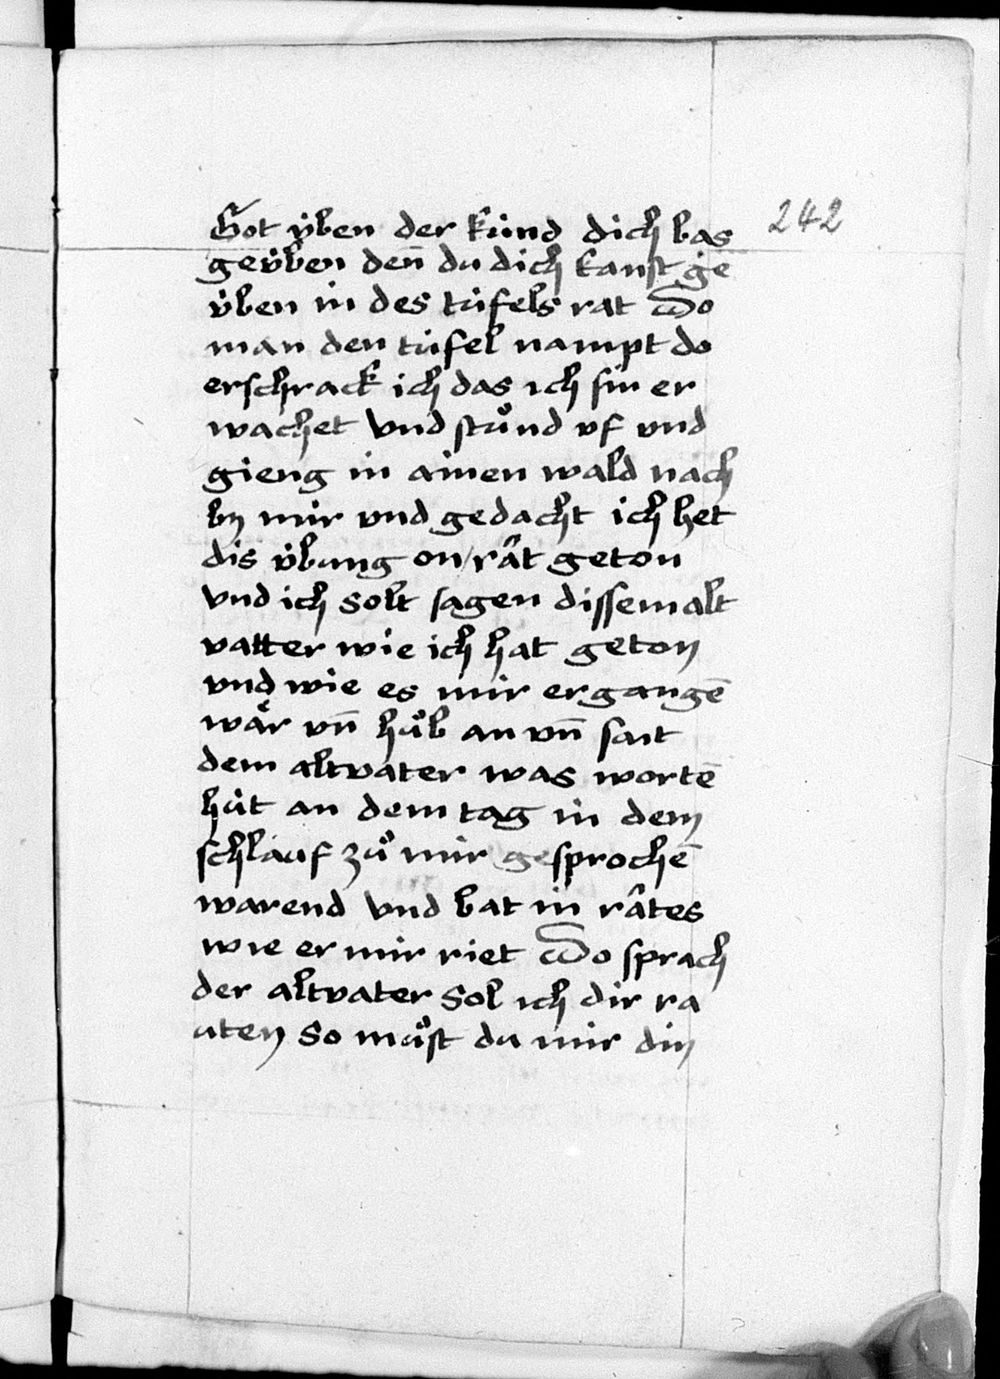 242
Got v̈ben der kúnd dich bas
gev̈ben den̄ du dich kanst ge
v̈ben in des túfels rat Do
man den túfel nampt do
erschrack ich das ich sin er
wachet vnd stůnd vf vnd
gieng in ainen wald nach
by mir vnd gedacht ich het
dis v̈bung on rât geton
vnd ich solt sagen dissem alt
vatter wie ich hat geton
vnd wie es mir ergangē
wår vn̄ hůb an vn̄ sait
dem altvater was wortē
hút an dem tag in dem
schlauf zů mir gesprochē
warend vnd bat in râtes
wie er mir riet Do sprach
der altvater Sol ich dir ra
uten So můst du mir din